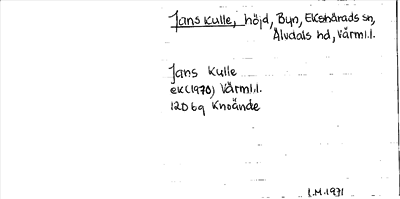 Jans Kulle, höjd, Byn, Ekshärads sn,
Älvdals hd, Värml.l.
Jans Kulle
ek(1970) Värml.l.
12D 6g Knoände
I.M. 1971